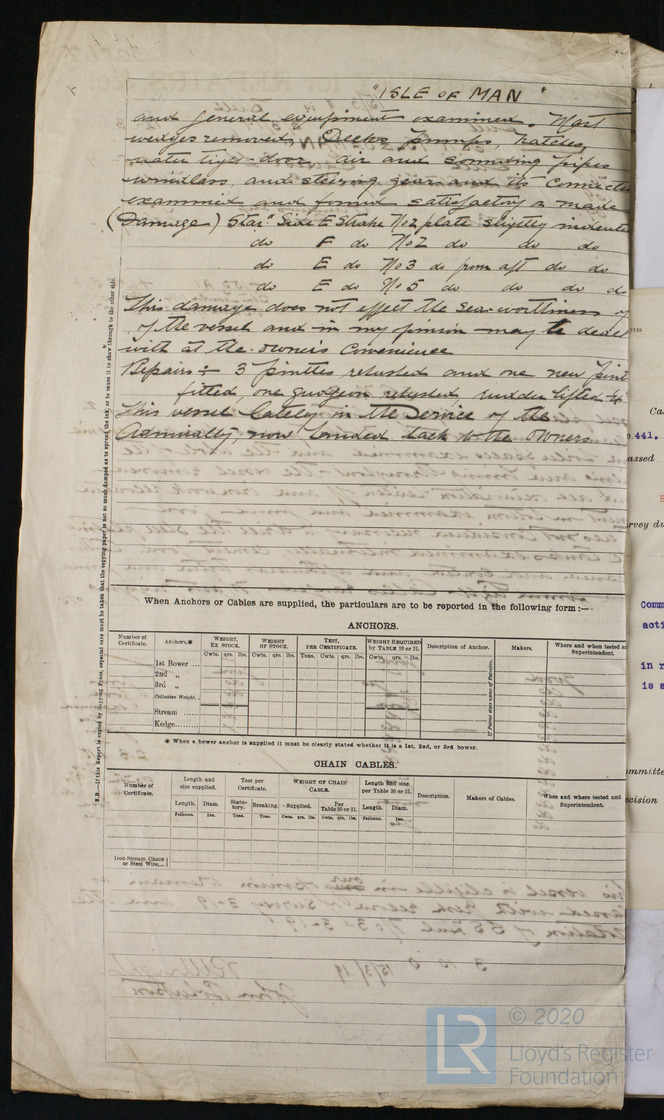 "ISLE OF MAN"
and general equipment examined. Mast
wedges removed, Decks pumps, hatches,
water tight door, air and sounding pipes
windlass, and steering gear and its connectio
examined and found satisfactory or made
(Damage) Starᵈ Side E Strake No 2 plate slightly indented
do F do No 2 do do do
do E do No 3 do from aft do do
do E do No 5 do do do do
This damage does not effect the sea worthiness of
of the vessel and in my opinion may be dealt
with at the owners convenience
Repairs ÷ 3 pintles rebushed and one new pint
fitted, one gudgeon rebushed, rudder lifted &c
This vessel lately in the Service of the
Admiralty now handed back to the owners
N.B.—If this Report is copied by Copying Press, especial care must be taken that the copying paper is not so much damped as to spread the ink, or to cause it to show through to the other side.
When Anchors or Cables are supplied, the particulars are to be reported in the following form :—
ANCHORS.
Number of Certificate. Anchors.* WEIGHT, EX. STOCK. WEIGHT OF STOCK. TEST, PER CERTIFICATE. WEIGHT REQUIRED by TABLE 30 or 31. Description of Anchor. Makers. Where and when tested a Superintendent.
Cwts. qrs. lbs. Cwts. qrs. lbs. Tons. Cwts. qrs. lbs. Cwts. qrs. lbs.
1st Bower ...
2nd „
3rd „
Collective Weight.
Stream ......
Kedge......
If Patent state name of Patentee.
* When a bower anchor is supplied it must be clearly stated whether it is a 1st, 2nd, or 3rd bower.
CHAIN CABLES.
Number of Certificate. Length and size supplied. Test per Certificate. WEIGHT OF CHAIN CABLE. Length and size per Table 30 or 31. Description. Makers of Cables. When and where tested and Superintendent.
Length. Diam. Statutory. Breaking. Supplied. Per Table 30 or 31. Length. Diam.
Fathoms. Ins. Tons. Tons. Cwts. qrs. lbs. Cwts. qrs. lbs. Fathoms. Ins.
Iron Stream Chain or Steel Wire....
Ca
.441.
assed
rvey du
Comm
acti
in r
is a
mmitte
cision
LR
© 2020
Lloyd's Register
Foundation